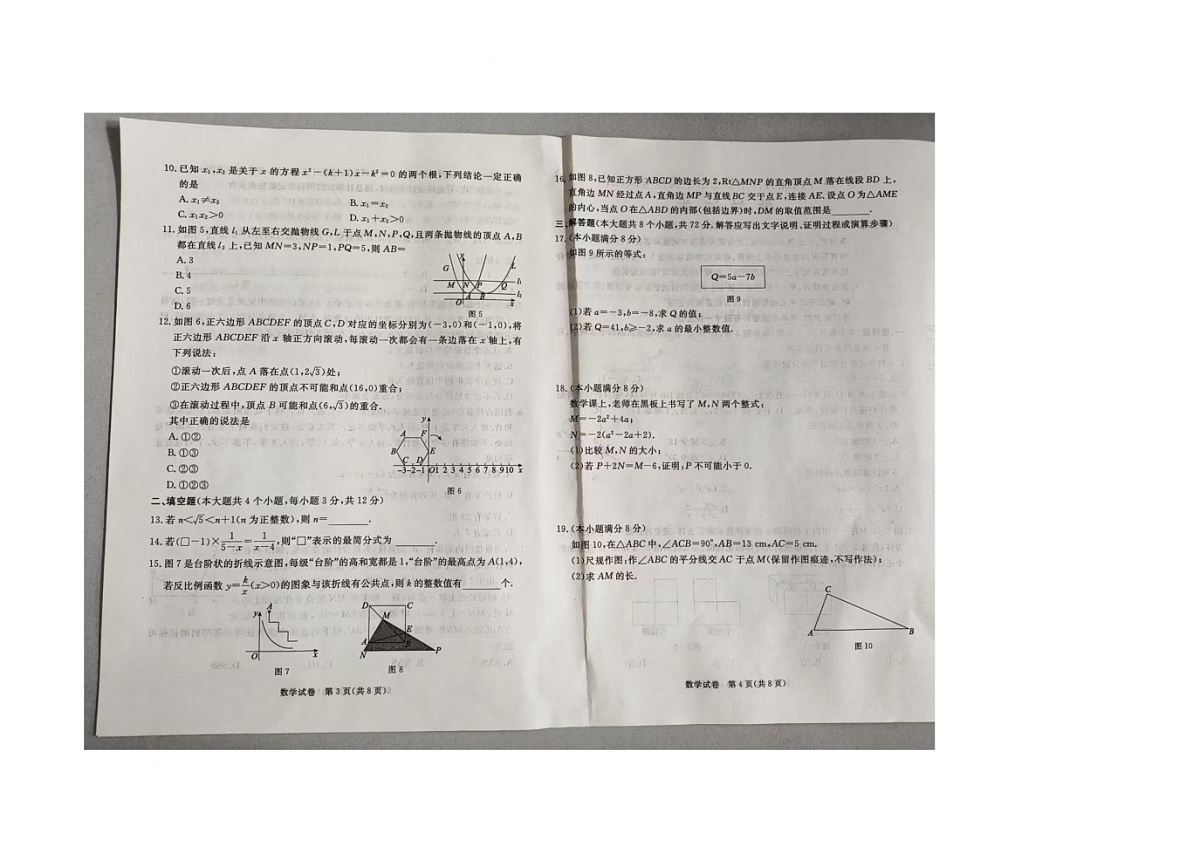 10.已知 x₁,x₂ 是关于 x 的方程 x²-(k+1)x-k²=0 的两个根,下列结论一定正确
的是
A. x₁≠x₂ B. x₁=x₂
C. x₁x₂>0 D. x₁+x₂>0
11.如图5,直线 l₁ 从左至右交抛物线G,L于点M,N,P,Q,且两条抛物线的顶点A,B
都在直线 l₂ 上,已知MN=3,NP=1,PQ=5,则AB=
A. 3
B. 4
C. 5
D. 6
G L
M N P Q l₁
O A B x l₂
图5
12.如图6,正六边形ABCDEF的顶点C,D对应的坐标分别为(-3,0)和(-1,0),将
正六边形ABCDEF沿 x 轴正方向滚动,每滚动一次都会有一条边落在 x 轴上,有
下列说法:
①滚动一次后,点A落在点(1,2√3)处;
②正六边形ABCDEF的顶点不可能和点(16,0)重合;
③在滚动过程中,顶点B可能和点(6,√3)的重合.
其中正确的说法是
A. ①②
B. ①③
C. ②③
D. ①②③
y
A F
B E
C D
-3-2-1 O 1 2 3 4 5 6 7 8 9 10 x
图6
二、填空题(本大题共4个小题,每小题3分,共12分)
13.若 n<√5<n+1(n为正整数),则 n=______.
14.若(□-1)×1/(5-x)=1/(x-4),则“□”表示的最简分式为______.
15.图7是台阶状的折线示意图,每级“台阶”的高和宽都是1,“台阶”的最高点为A(1,4),
若反比例函数 y=k/x(x>0)的图象与该折线有公共点,则 k 的整数值有______个.
y A
O x
图7
D C
M
E
A B
N P
图8
数学试卷 第3页(共8页)
16.如图8,已知正方形ABCD的边长为2,Rt△MNP的直角顶点M落在线段BD上,
直角边MN经过点A,直角边MP与直线BC交于点E,连接AE.设点O为△AME
的内心,当点O在△ABD的内部(包括边界)时,DM的取值范围是______.
三、解答题(本大题共8个小题,共72分.解答应写出文字说明、证明过程或演算步骤)
17.(本小题满分8分)
如图9所示的等式:
Q=5a-7b
图9
(1)若 a=-3,b=-8,求Q的值;
(2)若Q=41,b≥-2,求 a 的最小整数值.
18.(本小题满分8分)
数学课上,老师在黑板上书写了M,N两个整式:
M=-2a²+4a;
N=-2(a²-2a+2).
(1)比较M,N的大小;
(2)若P+2N=M-6,证明:P不可能小于0.
19.(本小题满分8分)
如图10,在△ABC中,∠ACB=90°,AB=13 cm,AC=5 cm.
(1)尺规作图:作∠ABC的平分线交AC于点M(保留作图痕迹,不写作法);
(2)求AM的长.
C
A B
图10
数学试卷 第4页(共8页)